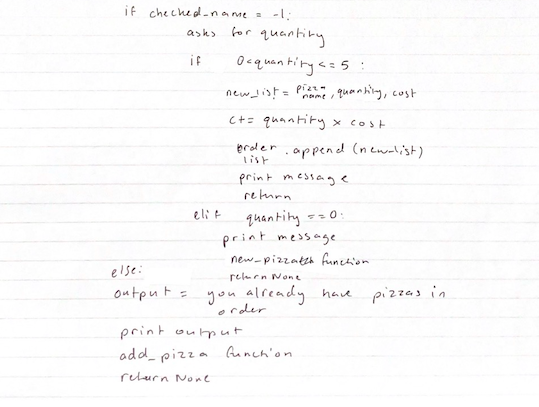 if checked_name = -1:
asks for quantity
if 0<quantity<=5 :
new_list = pizza name, quantity, cost
c+= quantity x cost
order list .append (new_list)
print message
return
elif quantity ==0:
print message
new_pizza function
return None
else:
output = you already have pizzas in
order
print output
add_pizza function
return None